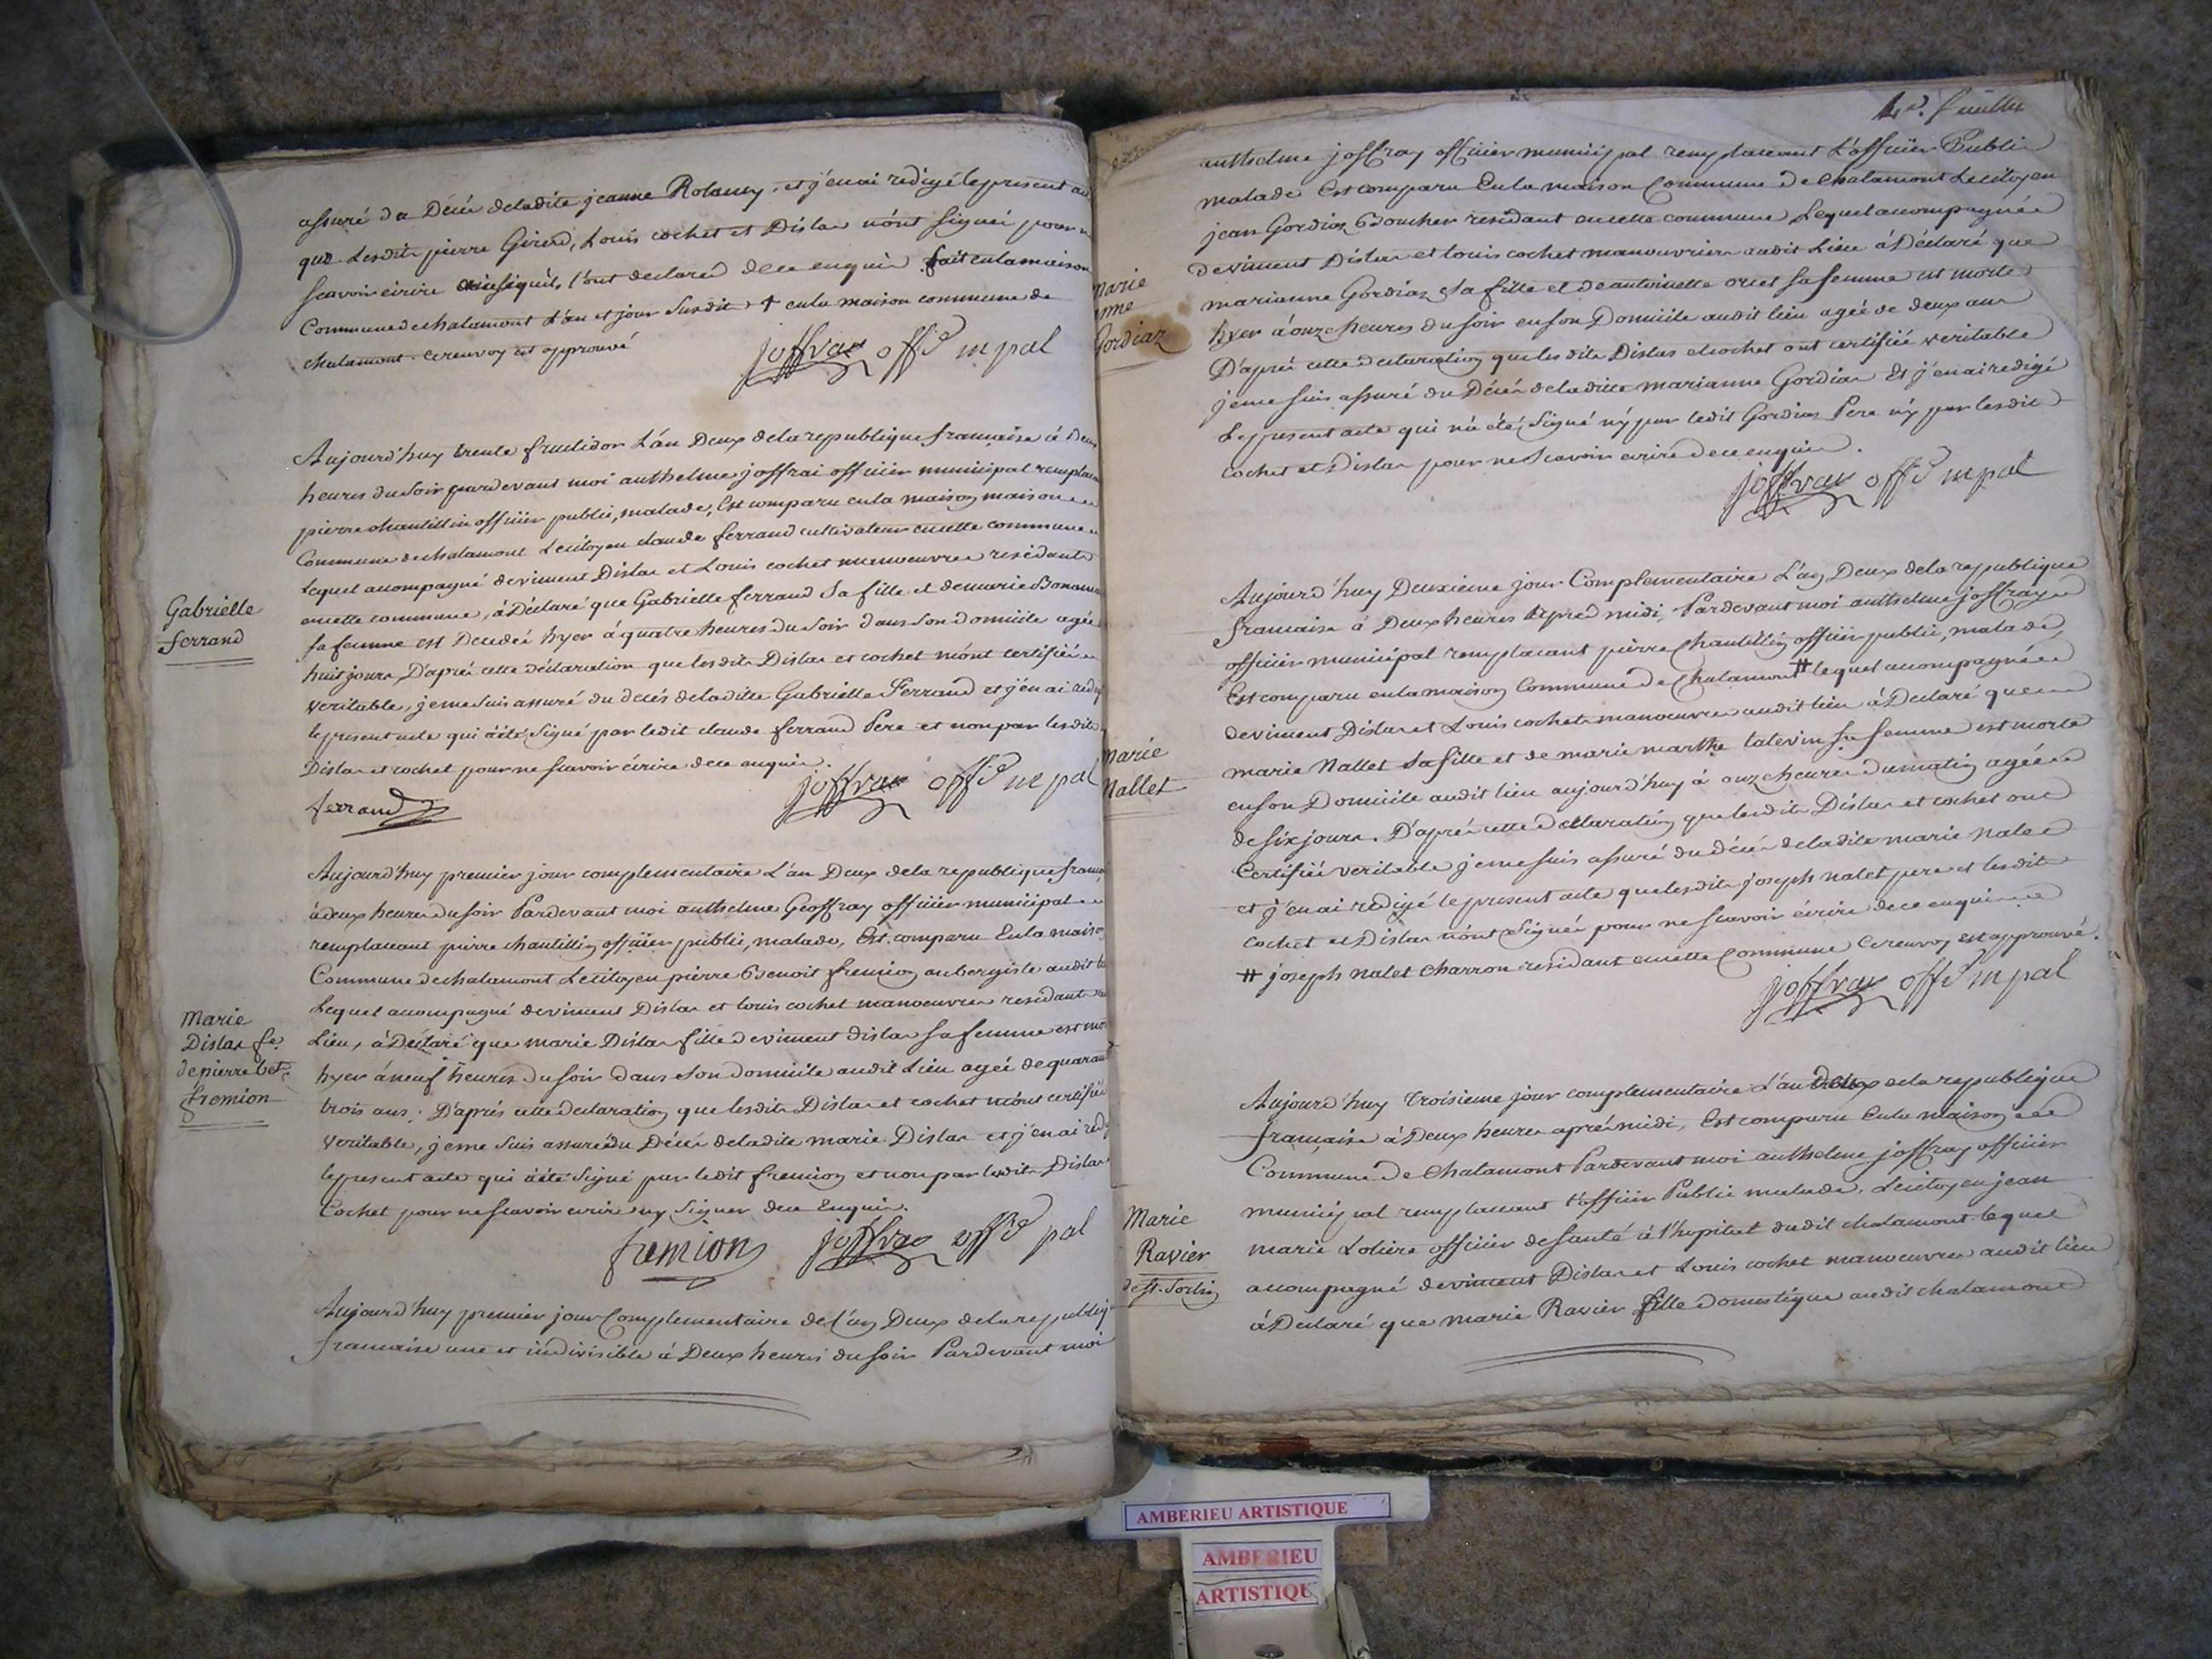 assuré du Décés deladite jeanne Rolaney, et j'enai redigé lepresent
que Lesdits pierre Girerd, Louis cochet et Dislas n'ont signé pour n
scavoir écrire ainsiquils l'ont declaré dece enquis fait enlamaison
Commune dechalamont L'an et jour Susdits + enla maison commune de
chalamont. cerenvoy est approuvé
joffray offer mpal
Gabrielle
ferrand
Aujourd'huy trente fructidor L'an Deux dela republique francaise à deux
heures du Soir pardevant moi anthelme joffrai officier municipal remplacant
pierre chantillin officier public, malade, Est comparu enla maison maison
Commune dechalamont Lecitoyen claude ferrand cultivateur encette commune
Lequel accompagné deviment Dislas et Louis cochet manoeuvres residants
encette commune, àDéclaré que Gabrielle ferrand Sa fille et demarie
sa femme est Decedée hyer à quatre heures du Soir dans Son domicile agée
huit jours, D'aprés cette déclaration que lesdits Dislas et cochet m'ont certifiée
veritable, jeme Suis assuré du decés deladitte Gabrielle Ferrand et j'en ai
lepresent acte qui àété Signé par ledit claude ferrand Pere et non par lesdits
Dislas et cochet pour ne scavoir écrire dece enquis.
ferrand joffray offer mpal
Marie
Dislas fe
depierre bet
fremion
Aujourd'huy premier jour complementaire L'an Deux dela republique
àdeux heures duSoir Pardevant moi anthelme Geoffray officier municipal
remplacant pierre chantillin officier public, malade, Est comparu Enla maison
Commune dechalamont Lecitoyen pierre Benoit fremion aubergiste audit
Lequel accompagné deviment Dislas et louis cochet manoeuvres residants
Lieu, à Déclaré que marie Dislas fille deviment dislas sa femme est
hyer à neuf heures du Soir dans Son domicile audit Lieu agée de
trois ans; D'aprés cette declaration que lesdits Dislas et cochet m'ont certifiée
veritable, jeme Suis assuré du Décés deladite marie Dislas et j'en ai
lepresent acte qui àété Signé par ledit fremion et non par lesdits Dislas
Cochet pour ne scavoir ecrire ny Signer dece Enquis.
fremion joffray offer pal
Aujourd'huy premier jour Complementaire del'an Deux dela
francaise une et indivisible à Deux heures du soir Pardevant moi
feuillet
anthelme joffray officier municipal remplacant L'officier Public
malade Est comparu Enla maison Commune de chalamont Lecitoyen
jean Gordiaz Boucher residant encette commune Lequel accompagnée
deviment Dislas et louis cochet manouvriers audit Lieu àDéclaré que
marie
anne
Gordiaz
marianne Gordiaz Sa fille et deantoinette sa femme est morte
hyer à onze heures du soir en son Domicile audit lieu agée de deux ans
D'aprés cette declaration que les dits Dislas etcochet ont certifiée veritable
jeme suis assuré du Décés deladitte marianne Gordiaz Et j'en ai redigé
Lepresent acte qui n'a été Signé ny par ledit Gordias Pere ny par lesdits
cochet et Dislas pour ne Scavoir écrire dece enquis.
joffray offer mpal
Marie
Nallet
Aujourd'huy Deuxieme jour Complementaire L'an Deux dela republique
francaise à Deux heures Aprés midi, Pardevant moi anthelme joffray
officier municipal remplacant pierre Chantillin officier public, malade,
Est comparu enlamaison Commune de Chalamont # lequel accompagnée
deviment Dislas et Louis cochet manoeuvres audit lieu àDeclaré que
marie Nallet Sa fille et de marie marthe talevin sa femme est morte
enson Domicile audit lieu aujourd'huy à onze heures dumatin agée
desix jours. D'aprés cette declaration que lesdits Dislas et cochet ont
Certifiée veritable jeme suis assuré du décés deladite marie nalet
et j'en ai redigé lepresent acte que lesdits joseph nalet pere et lesdits
cochet et Dislas n'ont Signés pour ne scavoir écrire dece enquis
# joseph nalet charron residant encette Commune Cerenvoy est approuvé.
joffray offer mpal
Marie
Ravier
de st. Sorlin
Aujourd'huy troisieme jour complementaire L'an deux dela republique
francaise à Deux heures aprés midi, Est comparu Enla maison
Commune de chalamont Pardevant moi anthelme joffray officier
municipal remplacant l'officier Public malade, Lecitoyen jean
marie Loliere officier desanté à l'hopital dudit chalamont lequel
accompagné deviment Dislas et Louis cochet manoeuvres audit lieu
àDeclaré que marie Ravier fille domestique audit chalamont
AMBERIEU ARTISTIQUE
AMBERIEU
ARTISTIQUE